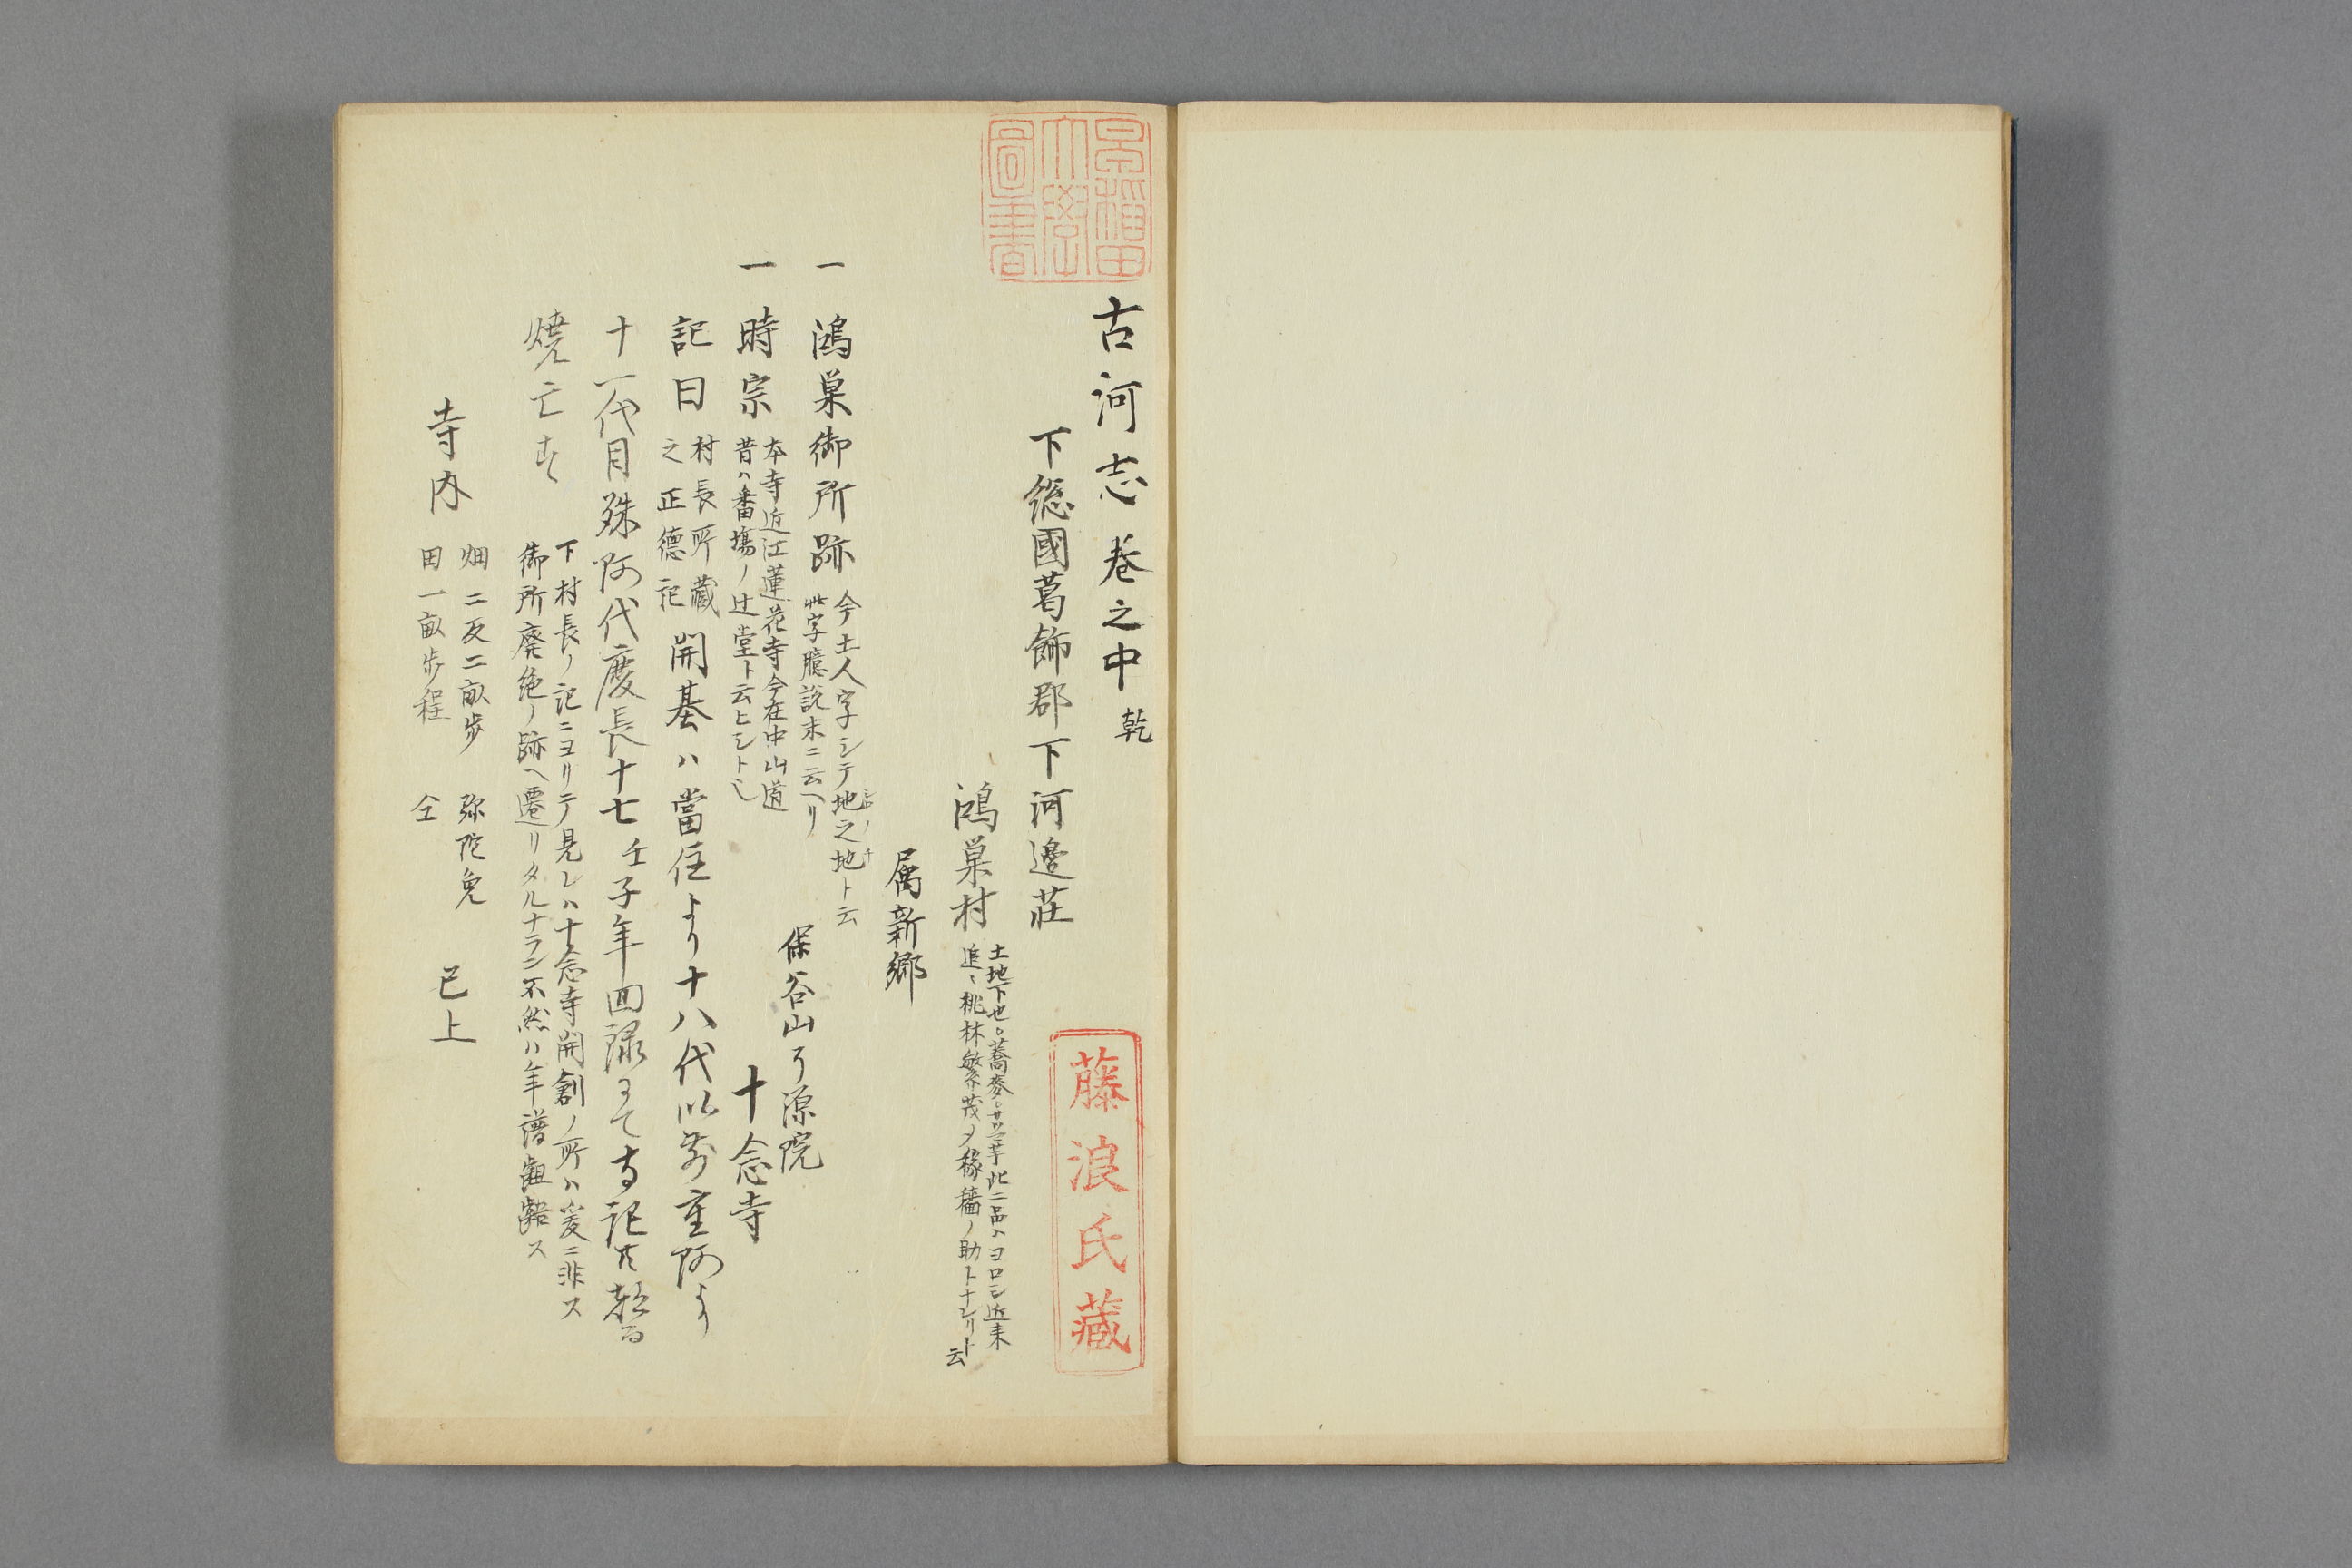 早稲田
大學
圖書
古河志 巻之中 乾
藤浪氏藏
下総國葛飾郡下河邉荘
鴻巣村
土地下也。蕎麥。
追〻桃林繁茂〆稼穡ノ助トナレリト云
属新郷
一 鴻巣御所跡
今土人字シテ地之地ト云
此字臆説末ニ云ヘリ
保谷山
源院
一 時宗
本寺近江蓮花寺今在中山道
昔ハ番場ノ辻堂ト云ヒシトし
十念寺
記曰
村長所藏
之正德記
開基ハ當住より十八代以前重阿より
十一代目殊阿代慶長十七壬子年回禄
焼亡す
下村長ノ記ニヨリテ見レハ十念寺開創ノ所ハ爰ニ非ス
御所廃絶ノ跡ヘ遷リタルナラン不然ハ年譜齟齬ス
寺内
畑二反二畝歩 弥陀免
田一畝歩程 仝
已上